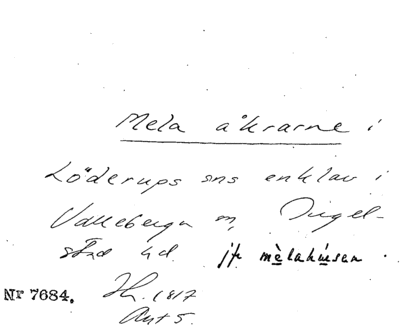 Mela åkrarne i
Löderups sns enklav i
Vallebergn m, Ingel-
stad hd. jfr mèlahúsen.
Nr 7684. Hh. 1817
Akt 5.